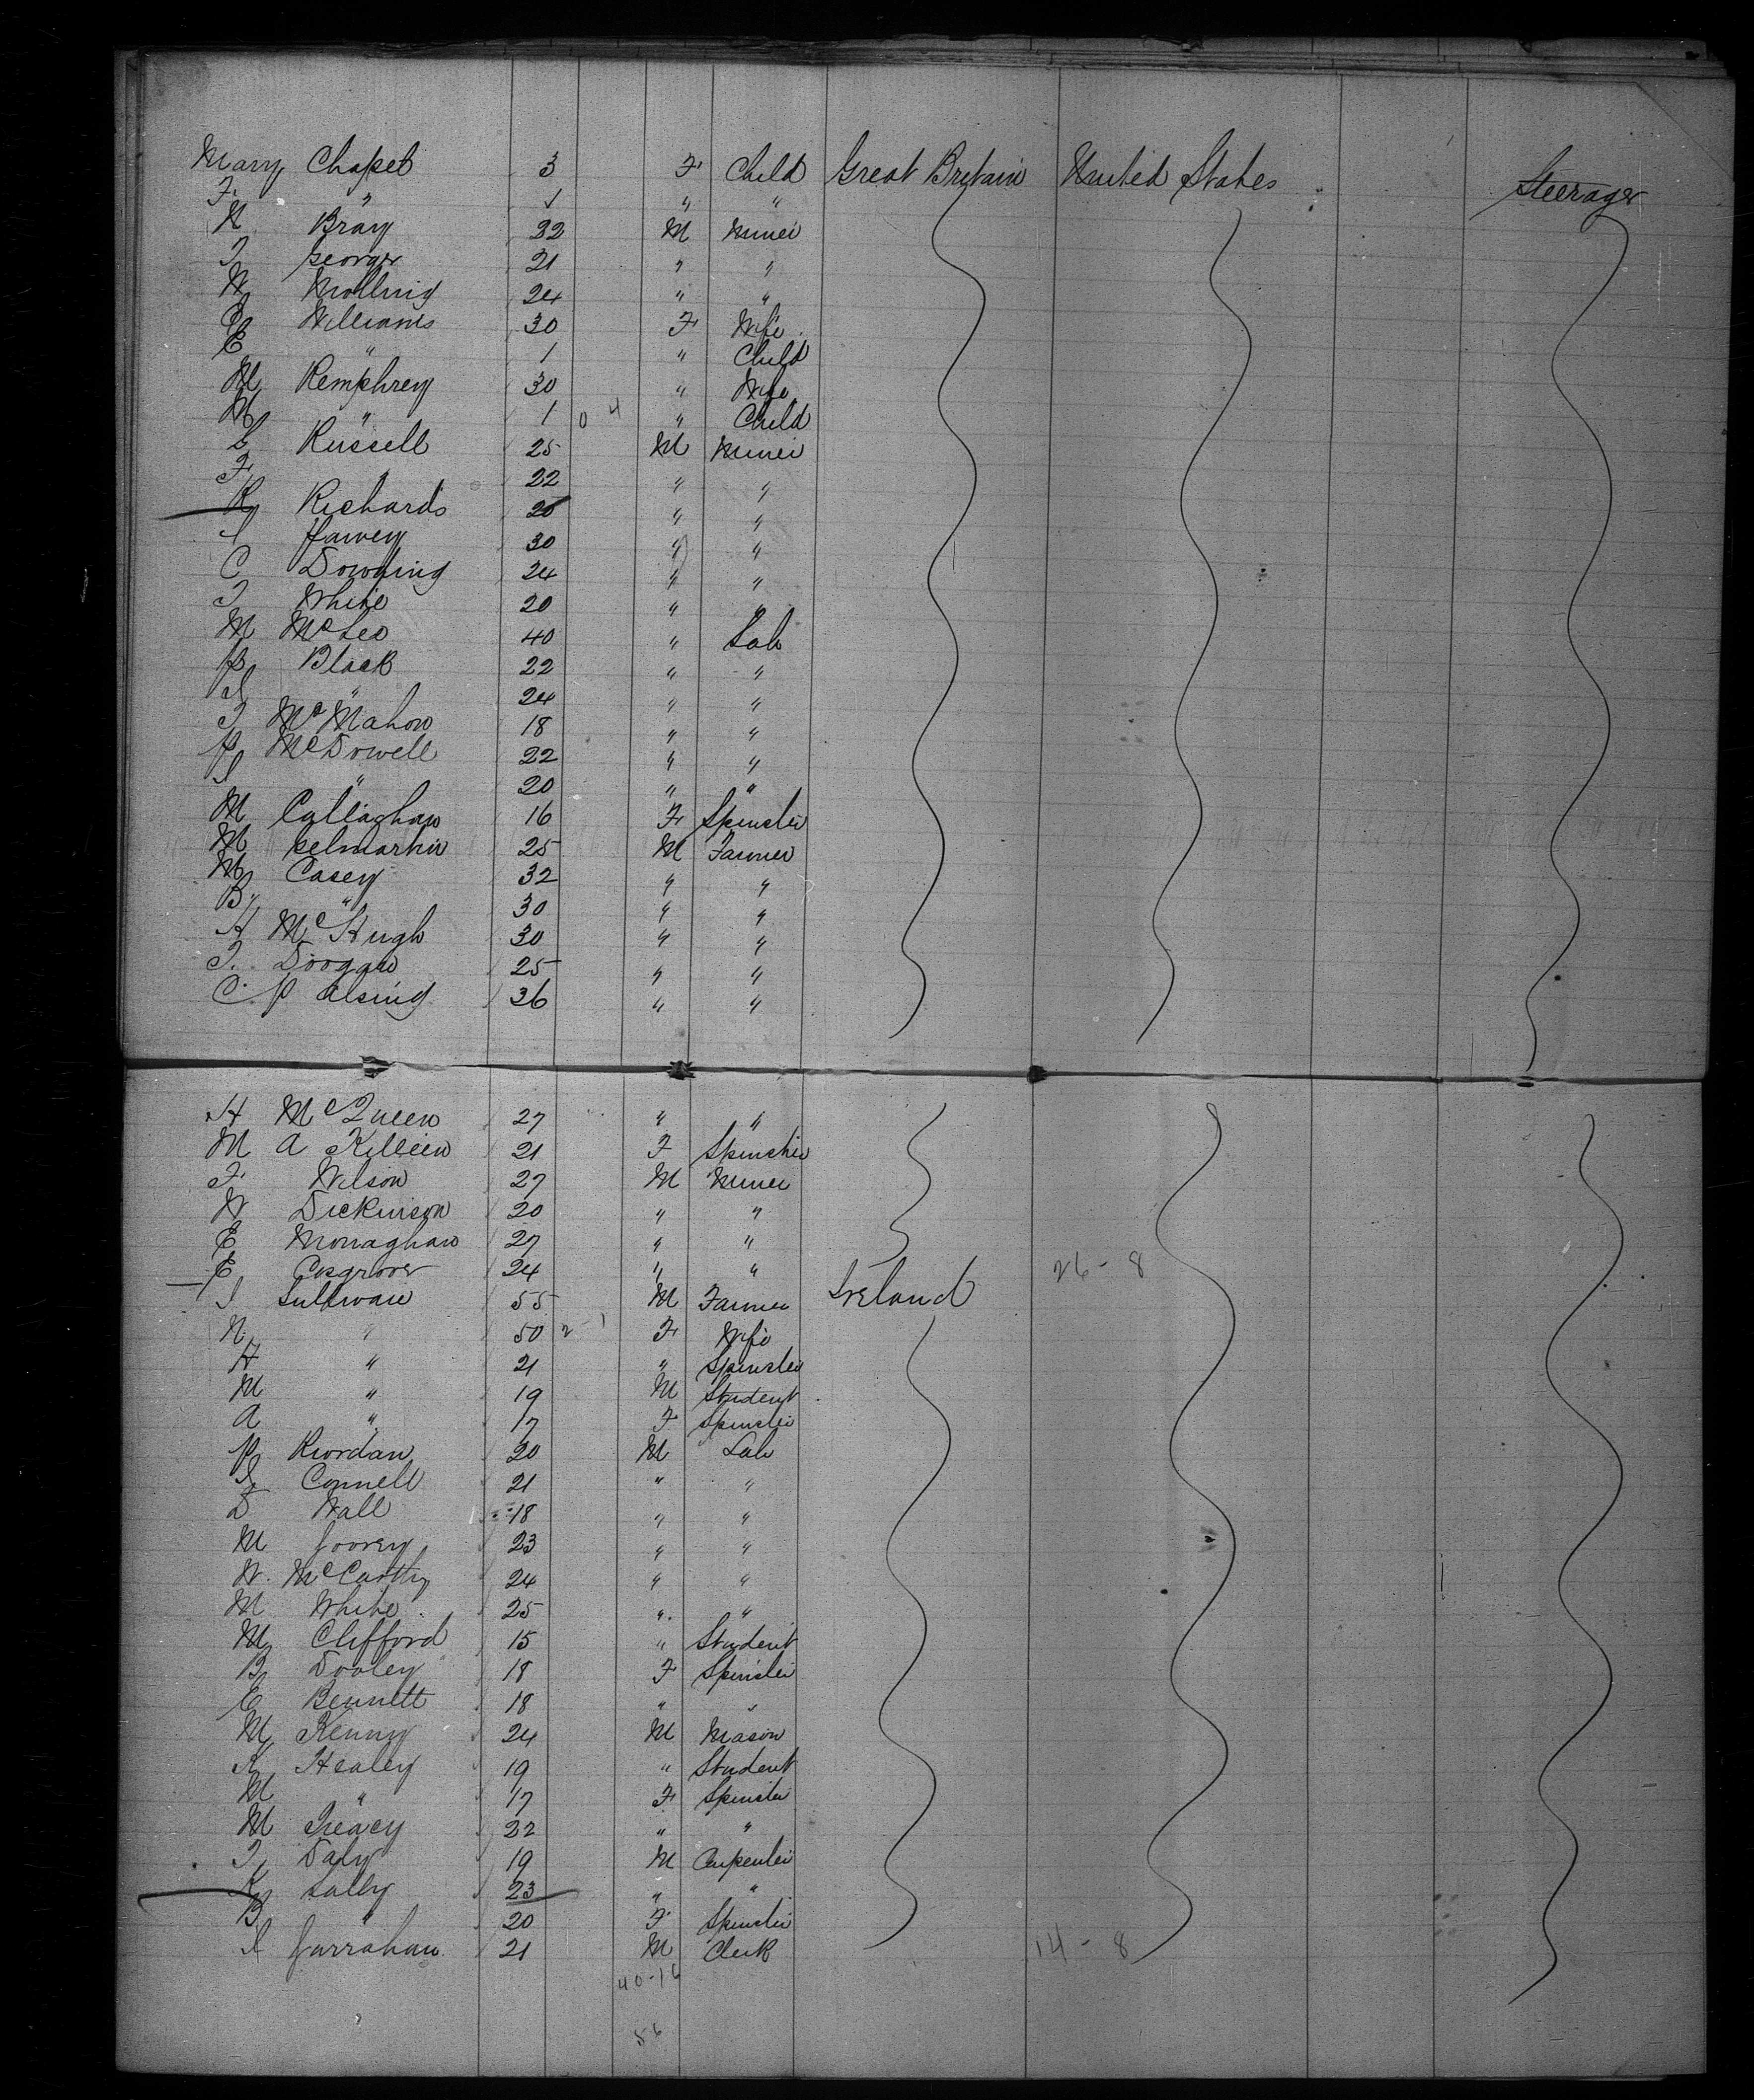 Mary Chapel 3 F Child Great Britain United States Steerage
F. " 1 " "
N Bray 22 M Miner
T George 21 " "
W Molling 24 " "
E Williams 30 F Wife
E " 1 " Child
M Remphrey 30 " Wife
M " 1 0 4 " Child
L Russell 25 M Miner
F " 22 " "
R Richards 25 " "
J Harvey 30 " "
C Downing 24 " "
T White 20 " "
M McLeo 40 " Lab
P Black 22 " "
J " 24 " "
T McMahon 18 " "
P McDowell 22 " "
J " 20 " "
M Callaghan 16 F Spinster
M Gelmartin 25 M Farmer
M Casey 32 " "
B " 30 " "
H McHugh 30 " "
T. Doogan 25 " "
C. P Alsing 36 " "
H McQueen 27 " "
M A Killeen 21 F Spinster
F Wilson 27 M Miner
W Dickinson 20 " "
E Monaghan 27 " "
E Cosgrove 24 " " 26-8
J Sullivan 55 M Farmer Ireland
N. " 50 2-1 F Wife
H " 21 " Spinster
M " 19 M Student
A " 17 F Spinster
P Riordan 20 M Lab
J Connell 21 " "
D Wall 18 " "
M 23 " "
W. McCarthy 24 " "
M White 25 " "
M Clifford 15 " Student
B Dooley 18 F Spinster
E Bennett 18 " "
M Kenny 24 M Mason
K Healey 19 " Student
M " 17 F Spinster
M Treacy 22 " "
T Daly 19 M Carpenter
K Lally 23 " "
B " 20 F Spinster
J 21 M Clerk 14-8
40-16
56